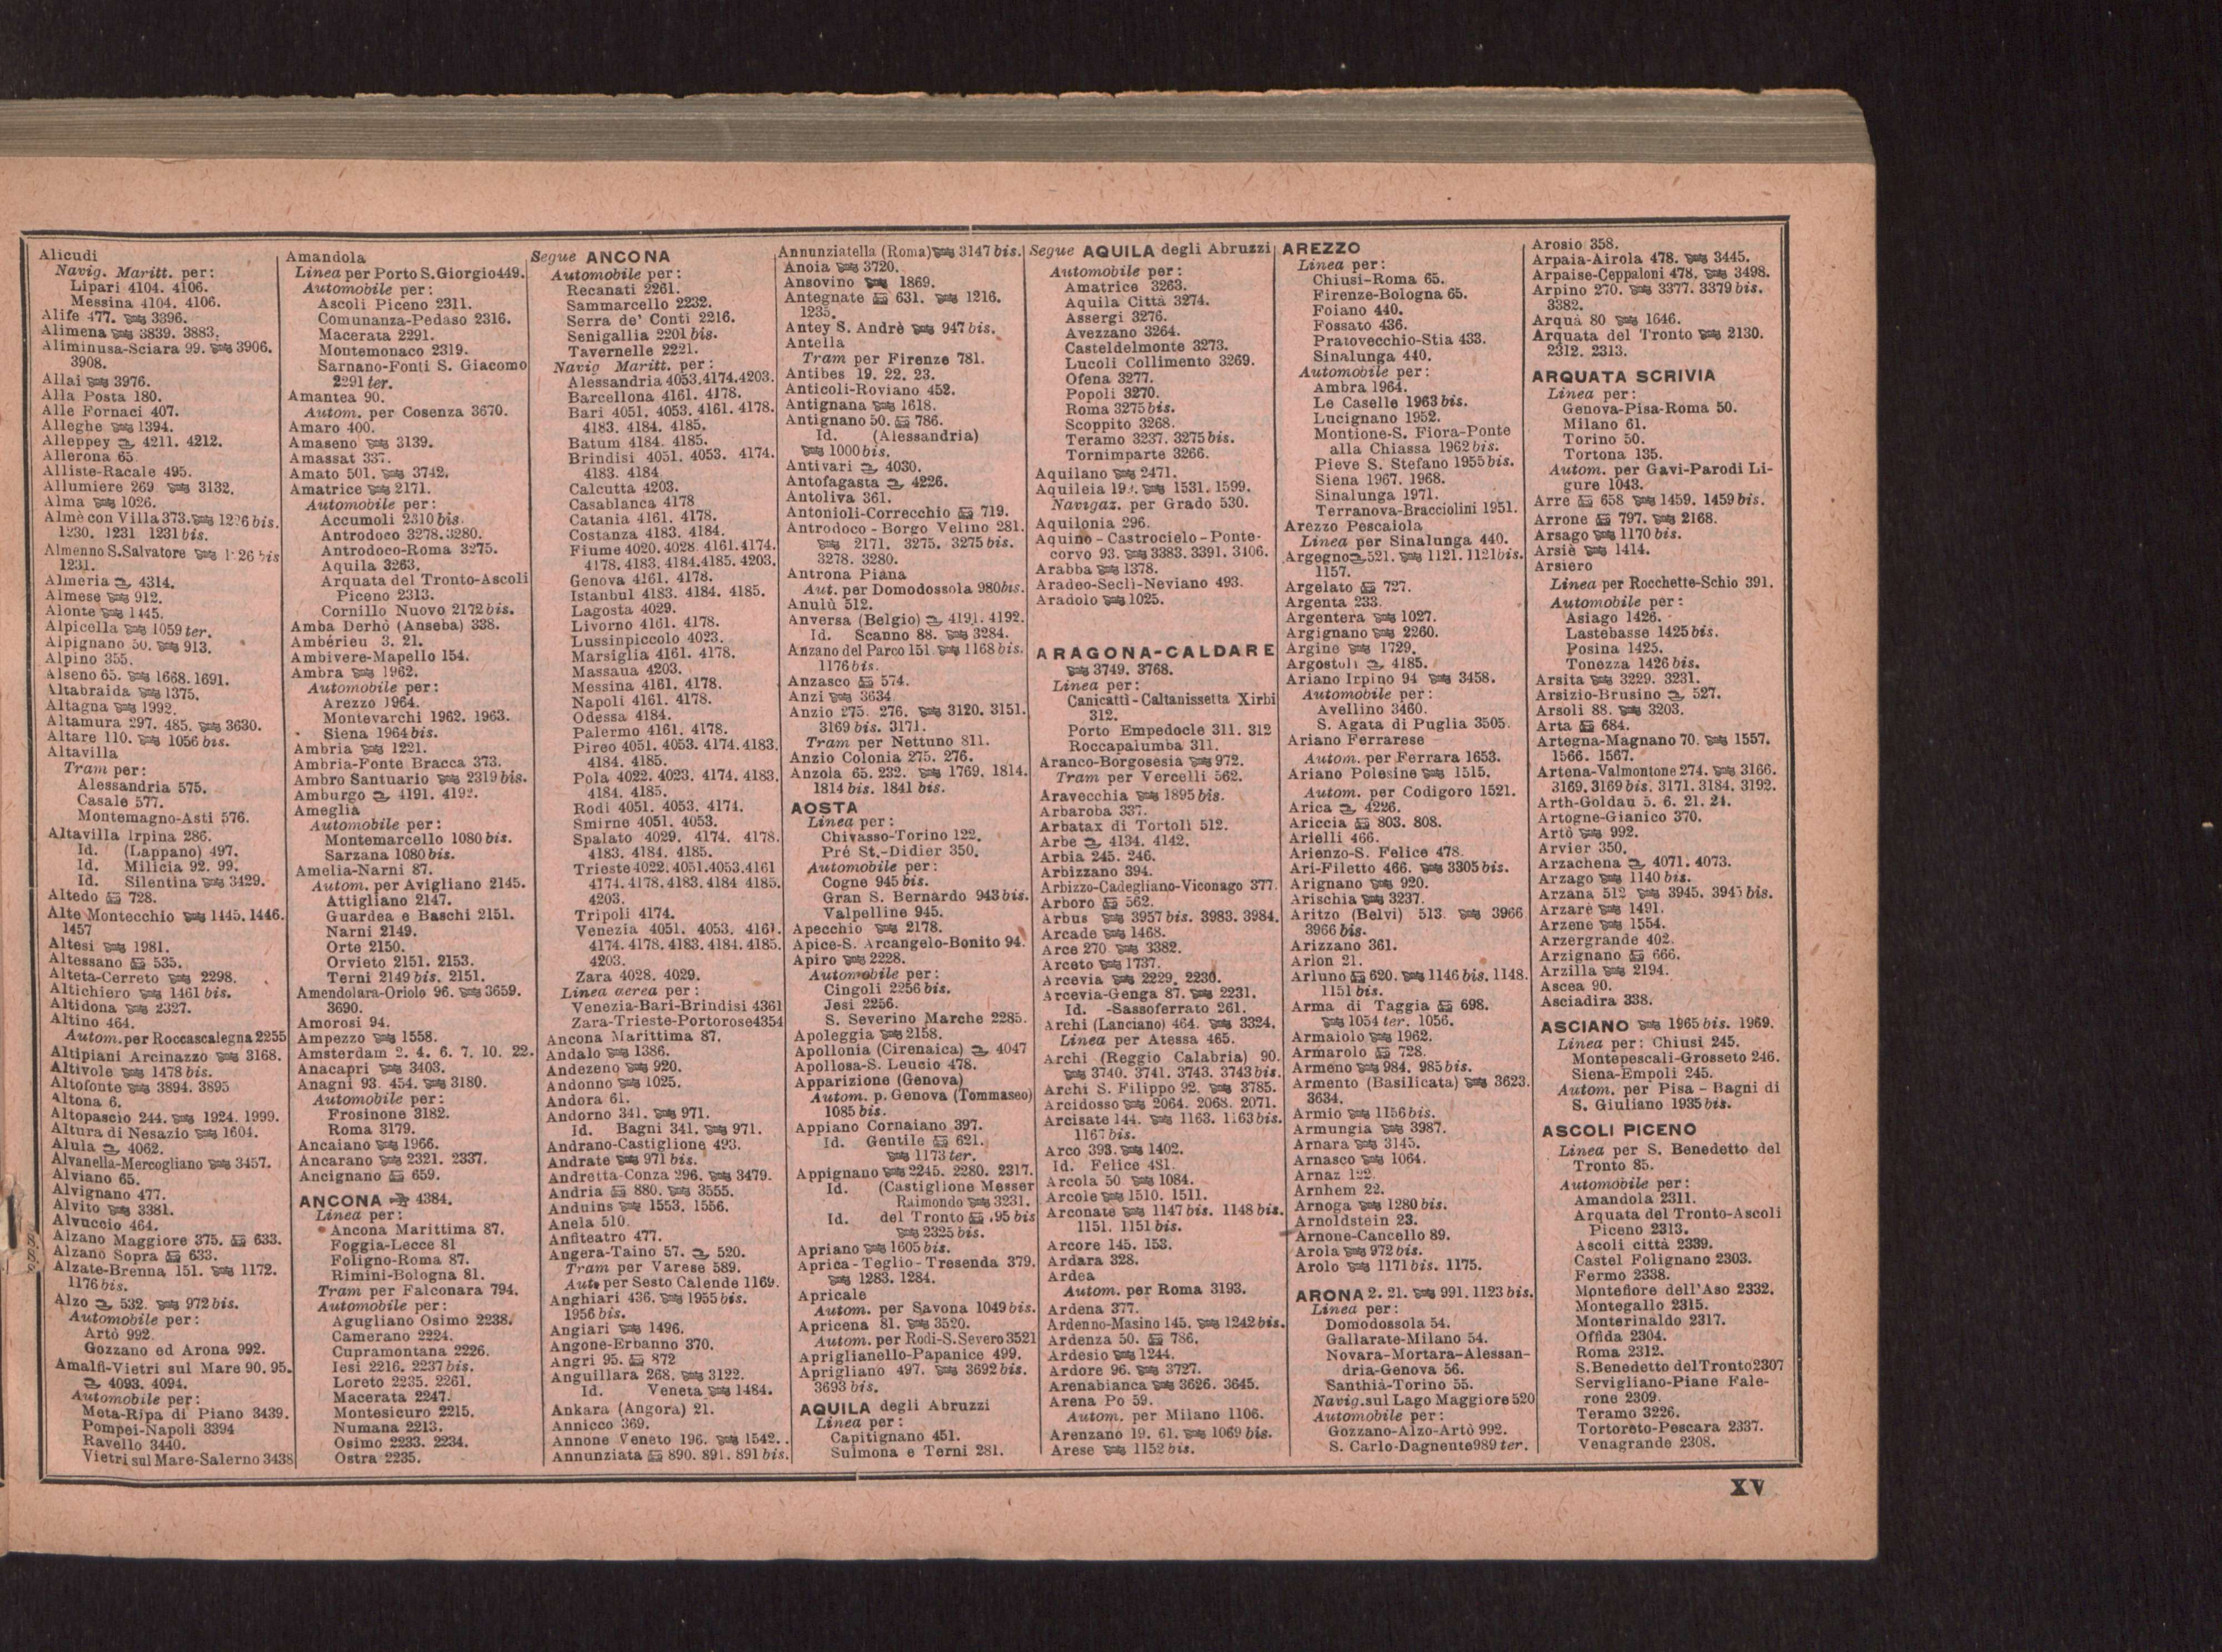 Alicudi
Navig. Maritt. per:
Lipari 4104. 4106.
Messina 4104. 4106.
Alife 477. 3396.
Alimena 3839. 3883.
Aliminusa-Sciara 99. 3906.
3908.
Allai 3976.
Alla Posta 180.
Alle Fornaci 407.
Alleghe 1394.
Alleppey 4211. 4212.
Allerona 65.
Alliste-Racale 495.
Allumiere 269 3132.
Alma 1026.
Almè con Villa 373. 1226 bis.
1230. 1231 1231 bis.
Almenno S. Salvatore bis
1231.
Almeria 4314.
Almese 912.
Alonte 1445.
Alpicella 1059 ter.
Alpignano 50. 913.
Alpino 355.
Alseno 65. 1668. 1691.
Altabraida 1375.
Altagna 1992.
Altamura 297. 485. 3630.
Altare 110. 1056 bis.
Altavilla
Tram per:
Alessandria 575.
Casale 577.
Montemagno-Asti 576.
Altavilla Irpina 286.
Id. (Lappano) 497.
Id. Milicia 92. 99.
Id. Silentina 3429.
Altedo 728.
Alte Montecchio 1445. 1446.
1457
Altesi 1981.
Altessano 535.
Alteta-Cerreto 2298.
Altichiero 1461 bis.
Altidona 2327.
Altino 464.
Autom. per Roccascalegna 2255
Altipiani Arcinazzo 3168.
Altivole 1478 bis.
Altofonte 3894. 3895
Altona 6.
Altopascio 244. 1924. 1999.
Altura di Nesazio 1604.
Alula 4062.
Alvanella-Mercogliano 3457.
Alviano 65.
Alvignano 477.
Alvito 3381.
Alvuccio 464.
Alzano Maggiore 375. 633.
Alzano Sopra 633.
Alzate-Brenna 151. 1172.
1176 bis.
Alzo 532. 972 bis.
Automobile per:
Artò 992.
Gozzano ed Arona 992.
Amalfi-Vietri sul Mare 90. 95.
4093. 4094.
Automobile per:
Meta-Ripa di Piano 3439.
Pompei-Napoli 3394
Ravello 3440.
Vietri sul Mare-Salerno 3438
Amandola
Linea per Porto S. Giorgio 449.
Automobile per:
Ascoli Piceno 2311.
Comunanza-Pedaso 2316.
Macerata 2291.
Montemonaco 2319.
Sarnano-Fonti S. Giacomo
2291 ter.
Amantea 90.
Autom. per Cosenza 3670.
Amaro 400.
Amaseno 3139.
Amassat 337.
Amato 501. 3742.
Amatrice 2171.
Automobile per:
Accumoli 2310 bis.
Antrodoco 3278. 3280.
Antrodoco-Roma 3275.
Aquila 3263.
Arquata del Tronto-Ascoli
Piceno 2313.
Cornillo Nuovo 2172 bis.
Amba Derhò (Anseba) 338.
Ambérieu 3. 21.
Ambivere-Mapello 154.
Ambra 1962.
Automobile per:
Arezzo 1964.
Montevarchi 1962. 1963.
Siena 1964 bis.
Ambria 1221.
Ambria-Fonte Bracca 373.
Ambro Santuario 2319 bis.
Amburgo 4191. 4192.
Ameglia
Automobile per:
Montemarcello 1080 bis.
Sarzana 1080 bis.
Amelia-Narni 87.
Autom. per Avigliano 2145.
Attigliano 2147.
Guardea e Baschi 2151.
Narni 2149.
Orte 2150.
Orvieto 2151. 2153.
Terni 2149 bis. 2151.
Amendolara-Oriolo 96. 3659.
3690.
Amorosi 94.
Ampezzo 1558.
Amsterdam 2. 4. 6. 7. 10. 22.
Anacapri 3403.
Anagni 93. 454. 3180.
Automobile per:
Frosinone 3182.
Roma 3179.
Ancaiano 1966.
Ancarano 2321. 2337.
Ancignano 659.
ANCONA 4384.
Linea per:
Ancona Marittima 87.
Foggia-Lecce 81
Foligno-Roma 87.
Rimini-Bologna 81.
Tram per Falconara 794.
Automobile per:
Agugliano Osimo 2238.
Camerano 2224.
Cupramontana 2226.
Iesi 2216. 2237 bis.
Loreto 2235. 2261.
Macerata 2247.
Montesicuro 2215.
Numana 2213.
Osimo 2233. 2234.
Ostra 2235.
Segue ANCONA
Automobile per:
Recanati 2261.
Sammarcello 2232.
Serra de' Conti 2216.
Senigallia 2201 bis.
Tavernelle 2221.
Navig Maritt. per:
Alessandria 4053. 4174. 4203.
Barcellona 4161. 4178.
Bari 4051. 4053. 4161. 4178.
4183. 4184. 4185.
Batum 4184. 4185.
Brindisi 4051. 4053. 4174.
4183. 4184.
Calcutta 4203.
Casablanca 4178
Catania 4161. 4178.
Costanza 4183. 4184.
Fiume 4020. 4028. 4161. 4174.
4178. 4183. 4184. 4185. 4203.
Genova 4161. 4178.
Istanbul 4183. 4184. 4185.
Lagosta 4029.
Livorno 4161. 4178.
Lussinpiccolo 4023.
Marsiglia 4161. 4178.
Massaua 4203.
Messina 4161. 4178.
Napoli 4161. 4178.
Odessa 4184.
Palermo 4161. 4178.
Pireo 4051. 4053. 4174. 4183.
4184. 4185.
Pola 4022. 4023. 4174. 4183.
4184. 4185.
Rodi 4051. 4053. 4174.
Smirne 4051. 4053.
Spalato 4029. 4174. 4178.
4183. 4184. 4185.
Trieste 4022. 4051. 4053. 4161
4174. 4178. 4183. 4184 4185.
4203.
Tripoli 4174.
Venezia 4051. 4053. 4161.
4174. 4178. 4183. 4184. 4185.
4203.
Zara 4028. 4029.
Linea aerea per:
Venezia-Bari-Brindisi 4361
Zara-Trieste-Portorose 4354
Ancona Marittima 87.
Andalo 1386.
Andezeno 920.
Andonno 1025.
Andora 61.
Andorno 341. 971.
Id. Bagni 341. 971.
Andrano-Castiglione 493.
Andrate 971 bis.
Andretta-Conza 296. 3479.
Andria 880. 3555.
Anduins 1553. 1556.
Anela 510.
Anfiteatro 477.
Angera-Taino 57. 520.
Tram per Varese 589.
Aut. per Sesto Calende 1169.
Anghiari 436. 1955 bis.
1956 bis.
Angiari 1496.
Angone-Erbanno 370.
Angri 95. 872
Anguillara 268. 3122.
Id. Veneta 1484.
Ankara (Angora) 21.
Annicco 369.
Annone Veneto 196. 1542.
Annunziata 890. 891. 891 bis.
Annunziatella (Roma) 3147 bis.
Anoia 3720.
Ansovino 1869.
Antegnate 631. 1216.
1235.
Antey S. Andrè 947 bis.
Antella
Tram per Firenze 781.
Antibes 19. 22. 23.
Anticoli-Roviano 452.
Antignana 1618.
Antignano 50. 786.
Id. (Alessandria)
1000 bis.
Antivari 4030.
Antofagasta 4226.
Antoliva 361.
Antonioli-Correcchio 719.
Antrodoco - Borgo Velino 281.
2171. 3275. 3275 bis.
3278. 3280.
Antrona Piana
Aut. per Domodossola 980 bis.
Anulù 512.
Anversa (Belgio) 4191. 4192.
Id. Scanno 88. 3284.
Anzano del Parco 151 1168 bis.
1176 bis.
Anzasco 574.
Anzi 3634
Anzio 275. 276. 3120. 3151.
3169 bis. 3171.
Tram per Nettuno 811.
Anzio Colonia 275. 276.
Anzola 65. 232. 1769. 1814.
1814 bis. 1841 bis.
AOSTA
Linea per:
Chivasso-Torino 122.
Pré St.-Didier 350.
Automobile per:
Cogne 945 bis.
Gran S. Bernardo 943 bis.
Valpelline 945.
Apecchio 2178.
Apice-S. Arcangelo-Bonito 94.
Apiro 2228.
Automobile per:
Cingoli 2256 bis.
Jesi 2256.
S. Severino Marche 2285.
Apoleggia 2158.
Apollonia (Cirenaica) 4047
Apollosa-S. Leucio 478.
Apparizione (Genova)
Autom. p. Genova (Tommaseo)
1085 bis.
Appiano Cornaiano 397.
Id. Gentile 621.
1173 ter.
Appignano 2245. 2280. 2317.
Id. (Castiglione Messer
Raimondo 3231.
Id. del Tronto 95 bis
2325 bis.
Apriano 1605 bis.
Aprica - Teglio - Tresenda 379.
1283. 1284.
Apricale
Autom. per Savona 1049 bis.
Apricena 81. 3520.
Autom. per Rodi-S. Severo 3521
Apriglianello-Papanice 499.
Aprigliano 497. 3692 bis.
3693 bis.
AQUILA degli Abruzzi
Linea per:
Capitignano 451.
Sulmona e Terni 281.
Segue AQUILA degli Abruzzi
Automobile per:
Amatrice 3263.
Aquila Città 3274.
Assergi 3276.
Avezzano 3264.
Casteldelmonte 3273.
Lucoli Collimento 3269.
Ofena 3277.
Popoli 3270.
Roma 3275 bis.
Scoppito 3268.
Teramo 3237. 3275 bis.
Tornimparte 3266.
Aquilano 2471.
Aquileia 1531. 1599.
Navigaz. per Grado 530.
Aquilonia 296.
Aquino - Castrocielo - Ponte-
corvo 93. 3383. 3391. 3106.
Arabba 1378.
Aradeo-Seclì-Neviano 493.
Aradolo 1025.
ARAGONA-CALDARE
3749. 3768.
Linea per:
Canicattì-Caltanissetta Xirbi
312.
Porto Empedocle 311. 312
Roccapalumba 311.
Aranco-Borgosesia 972.
Tram per Vercelli 562.
Aravecchia 1895 bis.
Arbaroba 337.
Arbatax di Tortolì 512.
Arbe 4134. 4142.
Arbia 245. 246.
Arbizzano 394.
Arbizzo-Cadegliano-Viconago 377.
Arboro 562.
Arbus 3957 bis. 3983. 3984.
Arcade 1468.
Arce 270. 3382.
Arceto 1737.
Arcevia 2229. 2230.
Arcevia-Genga 87. 2231.
Id. -Sassoferrato 261.
Archi (Lanciano) 464. 3324.
Linea per Atessa 465.
Archi (Reggio Calabria) 90.
3740. 3741. 3743. 3743 bis.
Archi S. Filippo 92. 3785.
Arcidosso 2064. 2068. 2071.
Arcisate 144. 1163. 1163 bis.
1167 bis.
Arco 393. 1402.
Id. Felice 481.
Arcola 50 1084.
Arcole 1510. 1511.
Arconate 1147 bis. 1148 bis.
1151. 1151 bis.
Arcore 145. 153.
Ardara 328.
Ardea
Autom. per Roma 3193.
Ardena 377.
Ardenno-Masino 145. 1242 bis.
Ardenza 50. 786.
Ardesio 1244.
Ardore 96. 3727.
Arenabianca 3626. 3645.
Arena Po 59.
Autom. per Milano 1106.
Arenzano 19. 61. 1069 bis.
Arese 1152 bis.
AREZZO
Linea per:
Chiusi-Roma 65.
Firenze-Bologna 65.
Foiano 440.
Fossato 436.
Pratovecchio-Stia 433.
Sinalunga 440.
Automobile per:
Ambra 1964.
Le Caselle 1963 bis.
Lucignano 1952.
Montione-S. Fiora-Ponte
alla Chiassa 1962 bis.
Pieve S. Stefano 1955 bis.
Siena 1967. 1968.
Sinalunga 1971.
Terranova-Bracciolini 1951.
Arezzo Pescaiola
Linea per Sinalunga 440.
Argegno 521. 1121. 1121 bis.
1157.
Argelato 727.
Argenta 233.
Argentera 1027.
Argignano 2260.
Argine 1729.
Argostoli 4185.
Ariano Irpino 94 3458.
Automobile per:
Avellino 3460.
S. Agata di Puglia 3505.
Ariano Ferrarese
Autom. per Ferrara 1653.
Ariano Polesine 1515.
Autom. per Codigoro 1521.
Arica 4226.
Ariccia 803. 808.
Arielli 466.
Arienzo-S. Felice 478.
Ari-Filetto 466. 3305 bis.
Arignano 920.
Arischia 3237.
Aritzo (Belvì) 513. 3966
3966 bis.
Arizzano 361.
Arlon 21.
Arluno 620. 1146 bis. 1148.
1151 bis.
Arma di Taggia 698.
1054 ter. 1056.
Armaiolo 1962.
Armarolo 728.
Armeno 984. 985 bis.
Armento (Basilicata) 3623.
3634.
Armio 1156 bis.
Armungia 3987.
Arnara 3145.
Arnasco 1064.
Arnaz 122.
Arnhem 22.
Arnoga 1280 bis.
Arnoldstein 23.
Arnone-Cancello 89.
Arola 972 bis.
Arolo 1171 bis. 1175.
ARONA 2. 21. 991. 1123 bis.
Linea per:
Domodossola 54.
Gallarate-Milano 54.
Novara-Mortara-Alessan-
dria-Genova 56.
Santhià-Torino 55.
Navig. sul Lago Maggiore 520
Automobile per:
Gozzano-Alzo-Artò 992.
S. Carlo-Dagnente 989 ter.
Arosio 358.
Arpaia-Airola 478. 3445.
Arpaise-Ceppaloni 478. 3498.
Arpino 270. 3377. 3379 bis.
3382.
Arquà 80 1646.
Arquata del Tronto 2130.
2312. 2313.
ARQUATA SCRIVIA
Linea per:
Genova-Pisa-Roma 50.
Milano 61.
Torino 50.
Tortona 135.
Autom. per Gavi-Parodi Li-
gure 1043.
Arre 658 1459. 1459 bis.
Arrone 797. 2168.
Arsago 1170 bis.
Arsiè 1414.
Arsiero
Linea per Rocchette-Schio 391.
Automobile per:
Asiago 1426.
Lastebasse 1425 bis.
Posina 1425.
Tonezza 1426 bis.
Arsita 3229. 3231.
Arsizio-Brusino 527.
Arsoli 88. 3203.
Arta 684.
Artegna-Magnano 70. 1557.
1566. 1567.
Artena-Valmontone 274. 3166.
3169. 3169 bis. 3171. 3184. 3192.
Arth-Goldau 5. 6. 21. 24.
Artogne-Gianico 370.
Artò 992.
Arvier 350.
Arzachena 4071. 4073.
Arzago 1140 bis.
Arzana 512 3945. 3945 bis.
Arzarè 1491.
Arzene 1554.
Arzergrande 402.
Arzignano 666.
Arzilla 2194.
Ascea 90.
Asciadira 338.
ASCIANO 1965 bis. 1969.
Linea per: Chiusi 245.
Montepescali-Grosseto 246.
Siena-Empoli 245.
Autom. per Pisa - Bagni di
S. Giuliano 1935 bis.
ASCOLI PICENO
Linea per S. Benedetto del
Tronto 85.
Automobile per:
Amandola 2311.
Arquata del Tronto-Ascoli
Piceno 2313.
Ascoli città 2339.
Castel Folignano 2303.
Fermo 2338.
Montefiore dell'Aso 2332.
Montegallo 2315.
Monterinaldo 2317.
Offida 2304.
Roma 2312.
S. Benedetto del Tronto 2307
Servigliano-Piane Fale-
rone 2309.
Teramo 3226.
Tortoreto-Pescara 2337.
Venagrande 2308.
XV